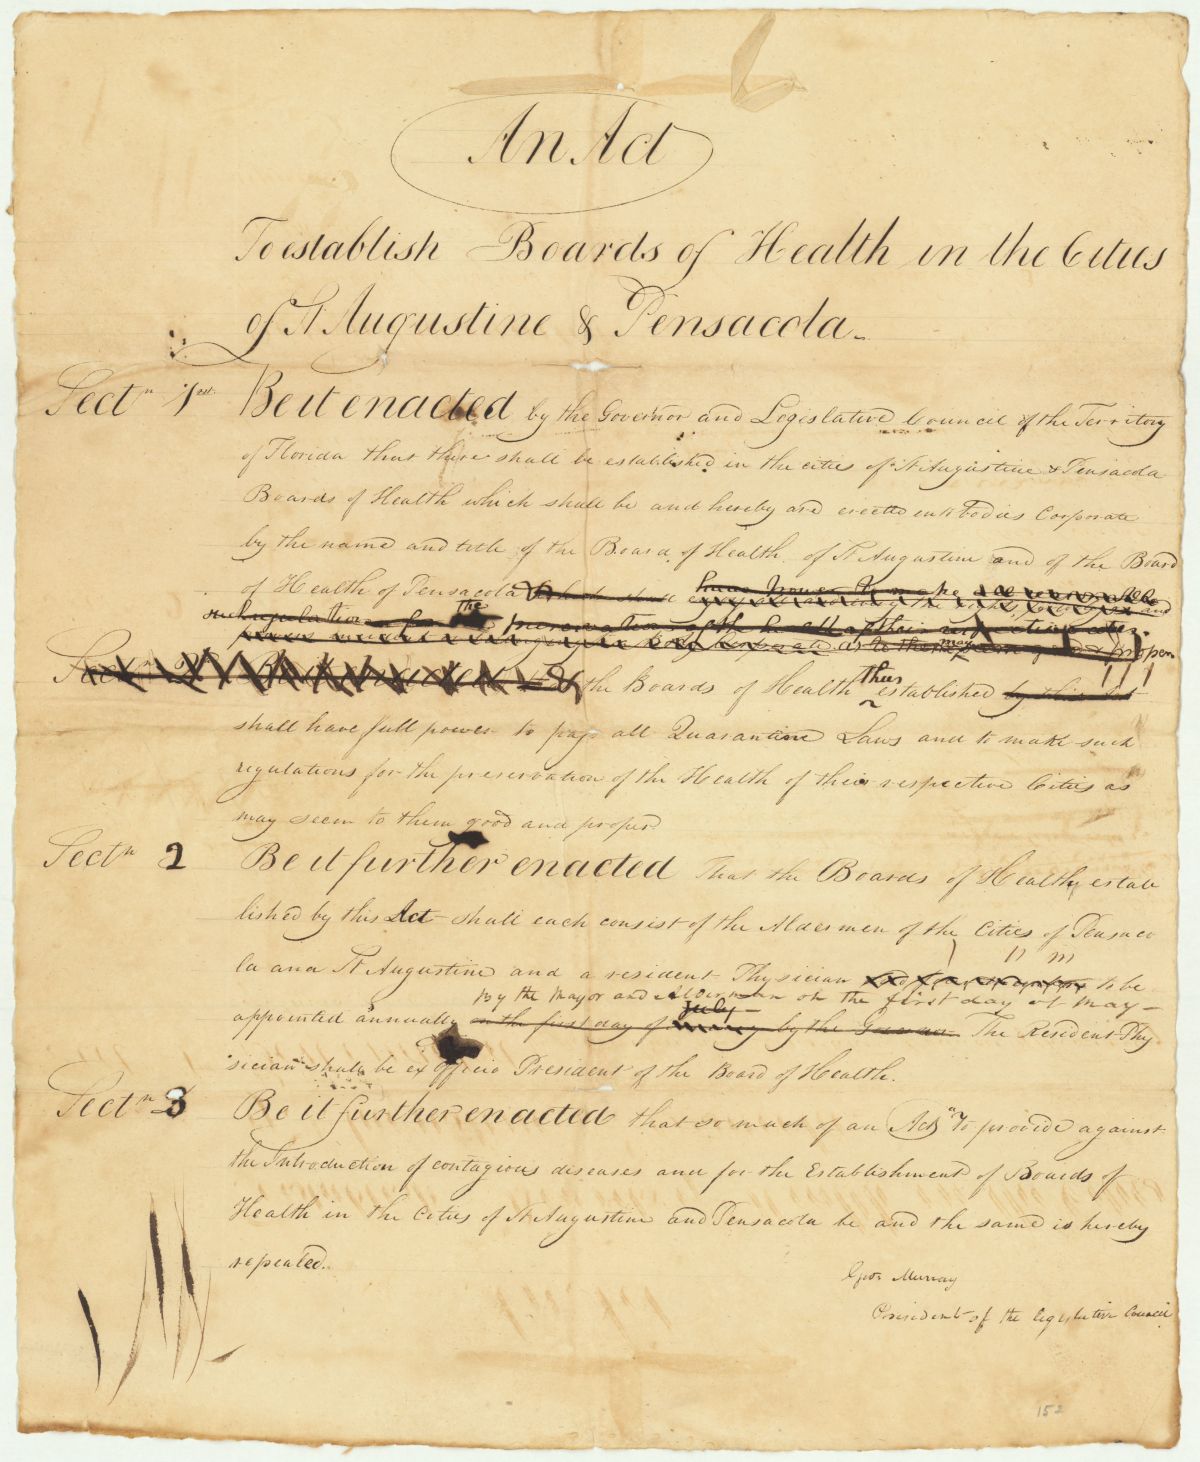 An Act
To establish Boards of Health in the Cities
of St Augustine & Pensacola.
Sectn 1st Be it enacted by the Governor and Legislative Council of the Territory
of Florida that there shall be established in the cities of St Augustine & Pensacola
Boards of Health which shall be and hereby are erected into bodies Corporate
by the name and title of the Board of Health of St Augustine and of the Board
of Health of Pensacola which shall have power to make
such regulations for the preservation of the health of their respective cities
as to them may seem good & proper
the Boards of Health thus established by this Act
shall have full power to pass all Quarantine Laws and to make such
regulations for the preservation of the Health of their respective Cities as
may seem to them good and proper
Sectn 2 Be it further enacted That the Boards of Health, estab
lished by this Act shall each consist of the Aldermen of the Cities of Pensaco
la and St Augustine and a resident Physician to be
By the Mayor and Aldermen on the first day of May
appointed annually on the first day of July by the Governor The Resident Phy
sician shall be ex Officio President of the Board of Health.
Sectn 3 Be it further enacted that so much of an Act "To provide against
the Introduction of contagious diseases and for the Establishment of Boards of
Health in the Cities of St Augustine and Pensacola be and the same is hereby
repealed.
Geo Murray
President of the legislative Council
152